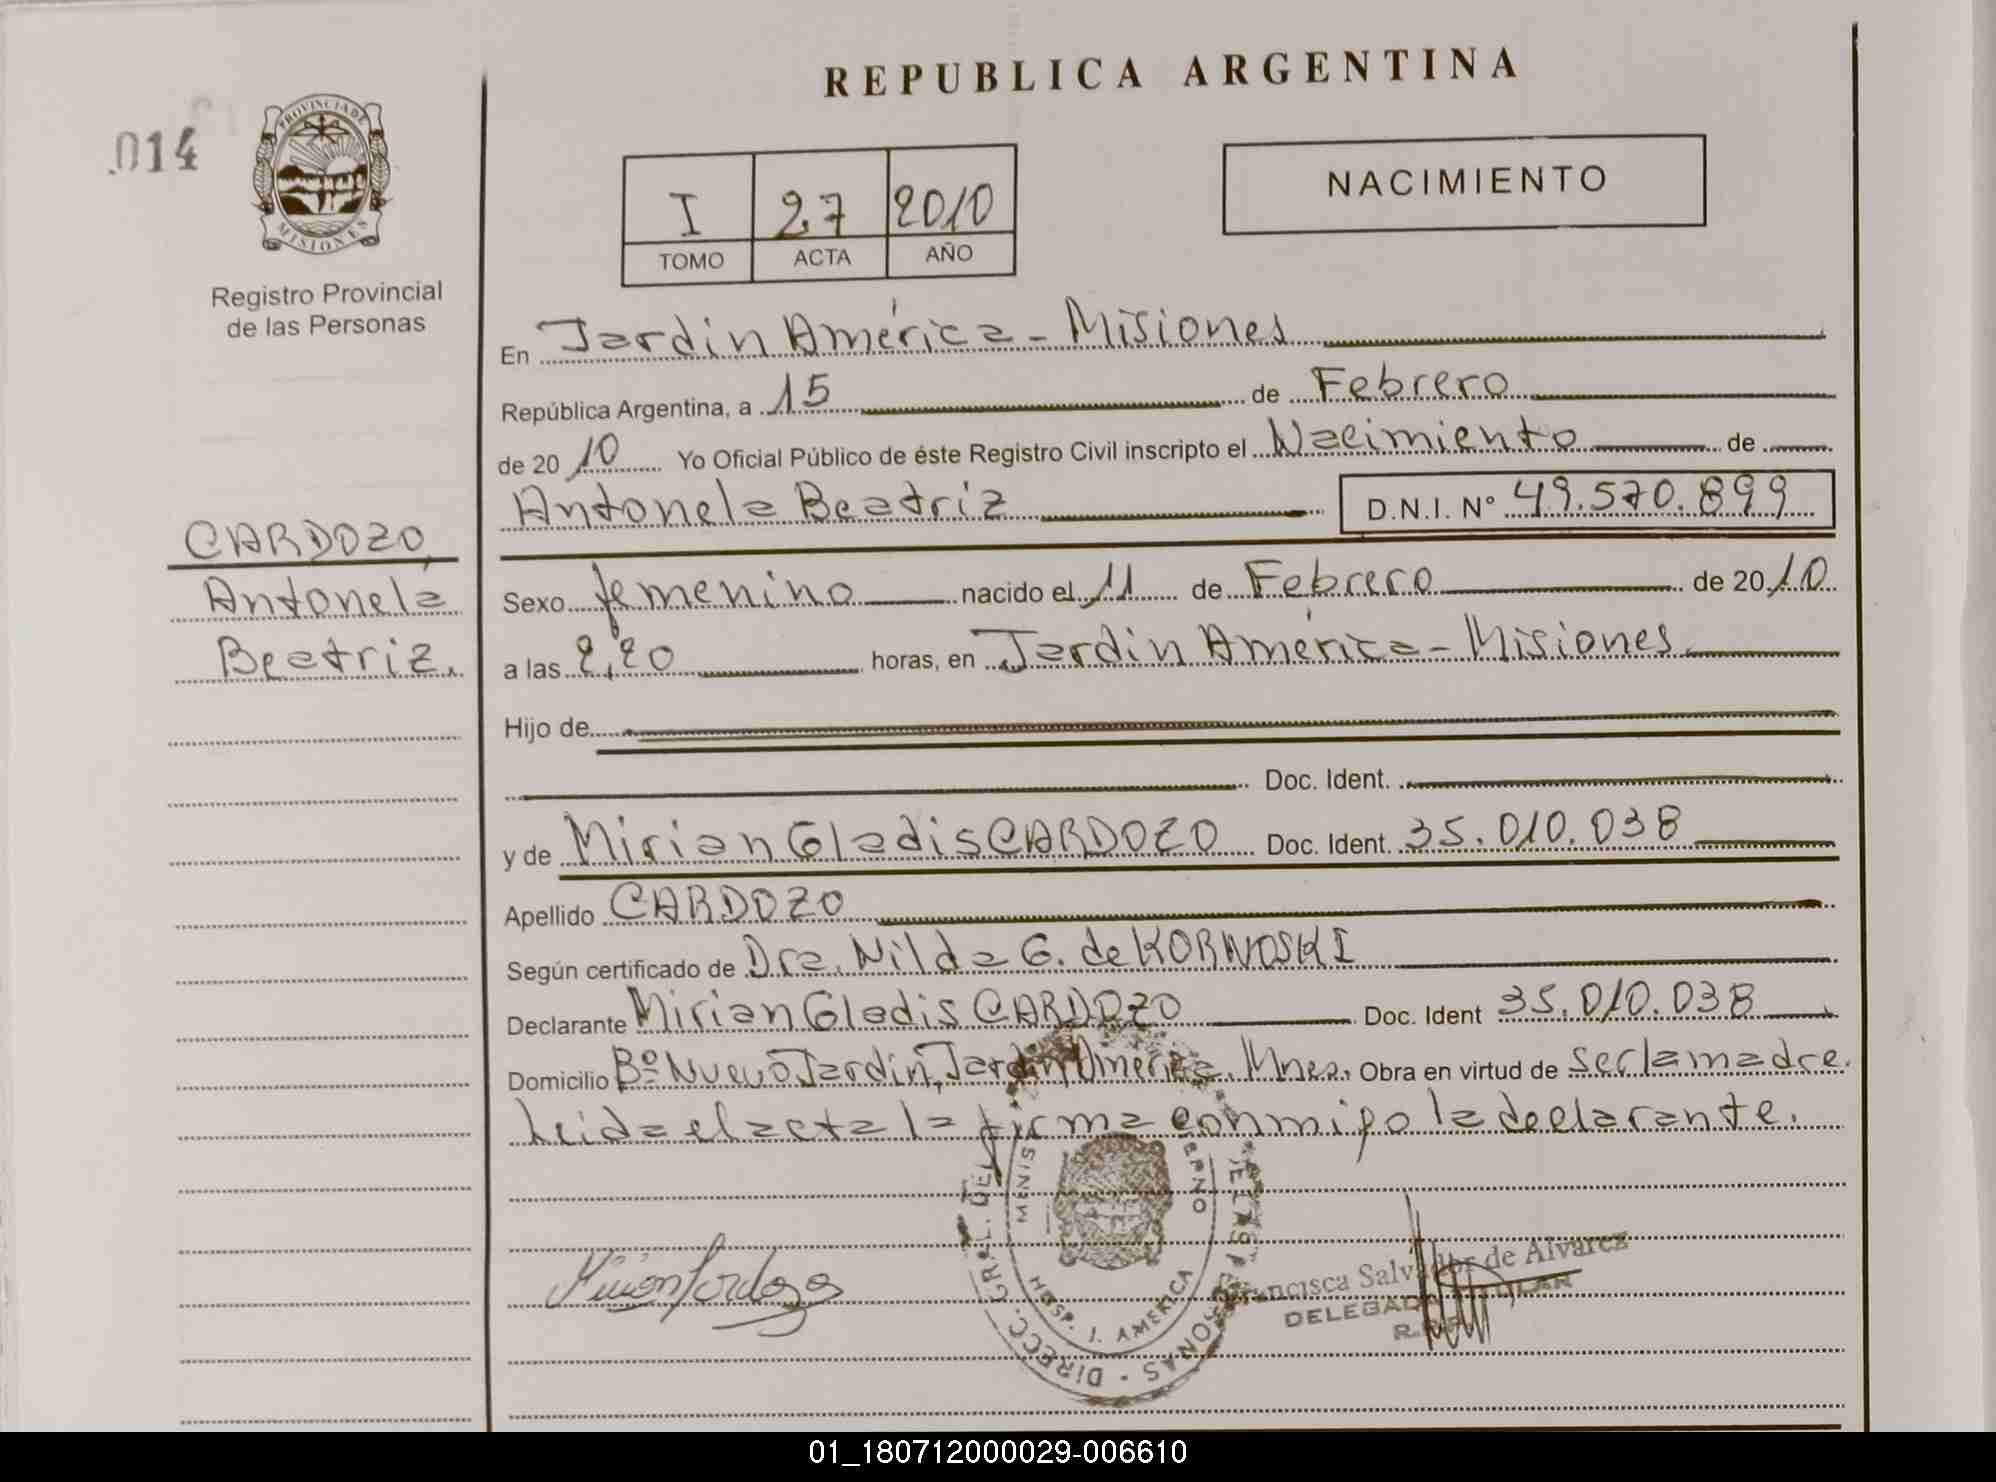 REPUBLICA ARGENTINA
014
PROVINCIA DE
MISIONES
Registro Provincial
de las Personas
I 27 2010
TOMO ACTA AÑO
NACIMIENTO
En Jardín América - Misiones
República Argentina, a 15 de Febrero
de 2010 Yo Oficial Público de éste Registro Civil inscripto el Nacimiento de
Antonela Beatriz D.N.I. Nº 49.570.899
CARDOZO
Antonela
Beatriz.
Sexo femenino nacido el 11 de Febrero de 2010
a las 2,20 horas, en Jardín América - Misiones
Hijo de
Doc. Ident.
y de Mirian Gladis CARDOZO Doc. Ident. 35.010.038
Apellido CARDOZO
Según certificado de Dra. Nilda G. de KORNOSKI
Declarante Mirian Gladis CARDOZO Doc. Ident 35.010.038
Domicilio Bº Nuevo Jardín, Jardín América, Mnes. Obra en virtud de ser la madre.
Leida el acta la firma conmigo la declarante.
DIRECC. GRAL. DEL
HOSP. J. AMERICA
Mirian Cardozo
Francisca Salvador de Alvarez
DELEGADA TITULAR
01_180712000029-006610